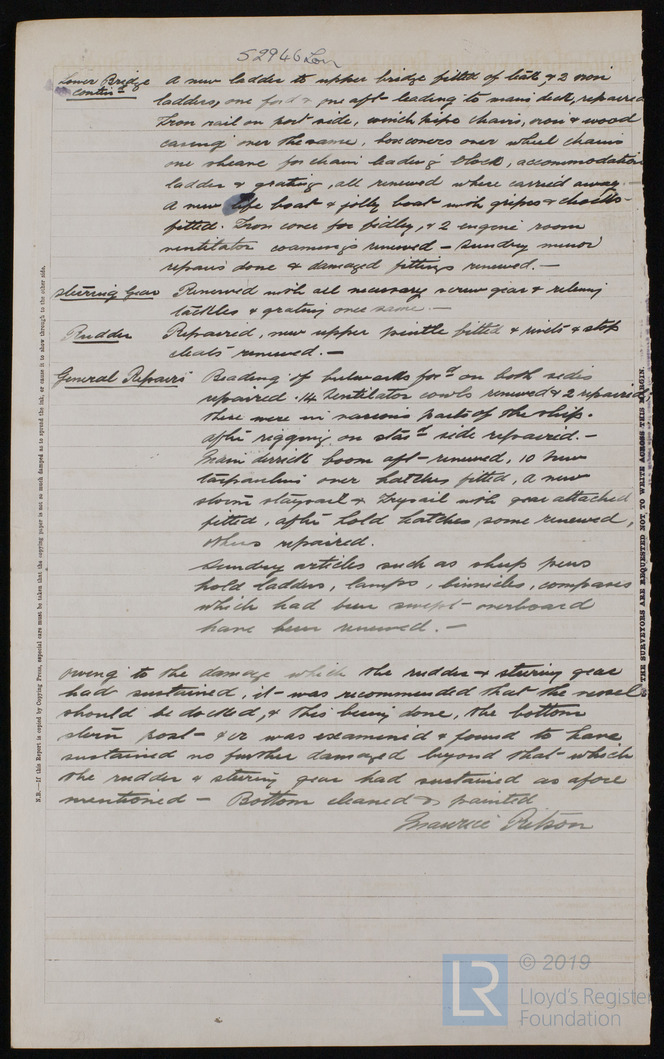 52946 Lon
Lower Bridge A new ladder to upper bridge fitted of teak, & 2 iron
contin'd ladders, one for'd & one aft leading to main deck, repaired
Iron rail on port side, winch pipe chains, iron & wood
casing over the same, boxcovers over wheel chains
one sheave for chain leading block, accommodation
ladder & grating, all renewed where carried away
A new life boat & jolly boat with gripes & chocks
fitted. Iron cover for fidley, & 2 engine room
ventilator coamings renewed - Sundry minor
repairs done & damaged fittings renewed. —
Steering Gear Renewed with all necessary screw gear & relieving
tackles & grating over same. —
Rudder Repaired, new upper pintle fitted & rivets & stop
cleats renewed. —
General Repairs Beading of bulwarks for'd on both sides
repaired. 14 Ventilator cowls renewed & 2 repaired
these were in various parts of the ship.
After rigging on star'd side repaired. —
Main derrick boom aft renewed, 10 new
tarpaulins over hatches fitted, a new
storm staysail & Trysail with gear attached
fitted, after hold hatches, some renewed,
others repaired.
Sundry articles such as sheep pens
hold ladders, lamps, binnicles, compasses
which had been swept overboard
have been renewed. —
Owing to the damage which the rudder & steering gear
had sustained, it was recommended that the vessel
should be docked, & this being done, the bottom
stern post &c was examined & found to have
sustained no further damaged beyond that which
the rudder & steering gear had sustained as afore
mentioned — Bottom cleaned & painted
Maurice Ritson
N.B.—If this Report is copied by Copying Press, especial care must be taken that the copying paper is not so much damped as to spread the ink, or cause it to show through to the other side.
THE SURVEYORS ARE REQUESTED NOT TO WRITE ACROSS THIS MARGIN.
LR
© 2019
Lloyd's Register
Foundation